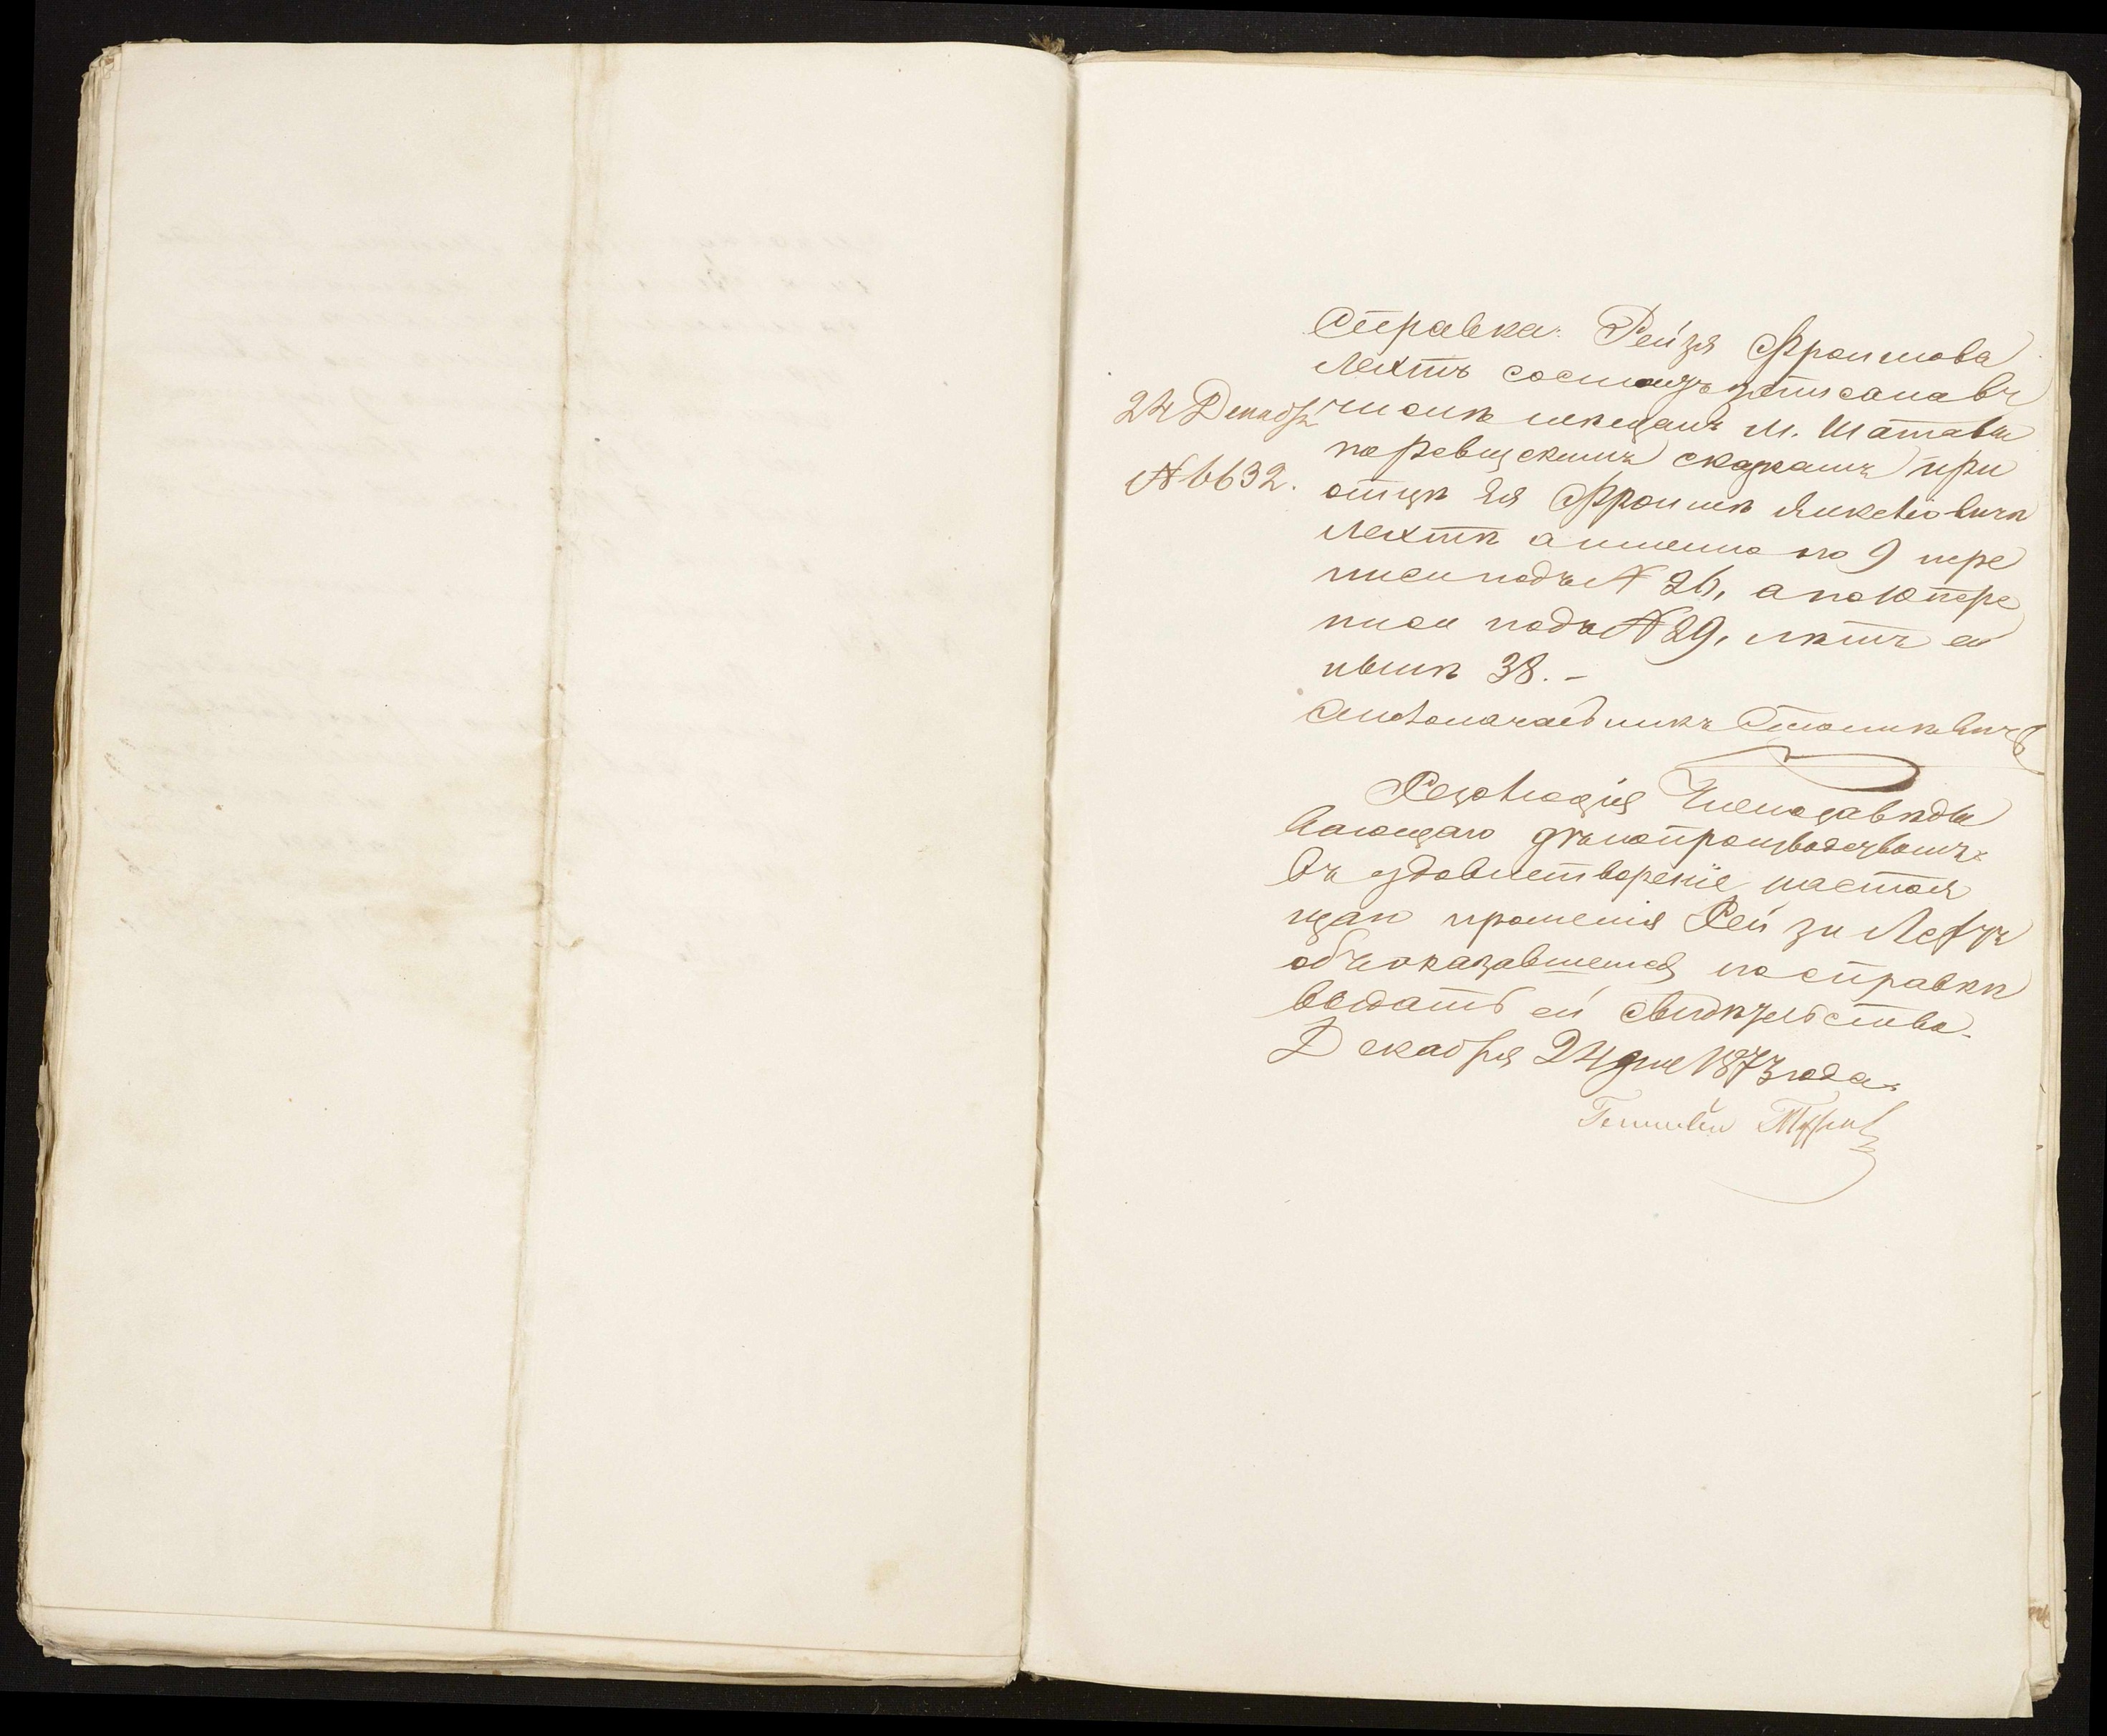 Справка. Рейзя Фроимова
Лехтъ состоитъ записана въ
числѣ мѣщанъ м. Шатавы
по ревизскимъ сказкамъ при
отцѣ ея Фроимѣ Янкелiовичѣ
Лехтѣ а именно по 9 пере
писи подъ № 26, а по 10 пере
писи подъ № 29, лѣтъ ей
нынѣ 38.-
24 Декабр
№ 6632.
Столоначальникъ
Резолюція Члена завѣды
вающаго дѣлопроизводствомъ:
Въ удовлетвореніе настоя
щаго прошенія Рейзи Лехтъ
объ оказавшемся по справкѣ
выдать ей свидѣтельство.
Декабря 24 дня 1873 года.